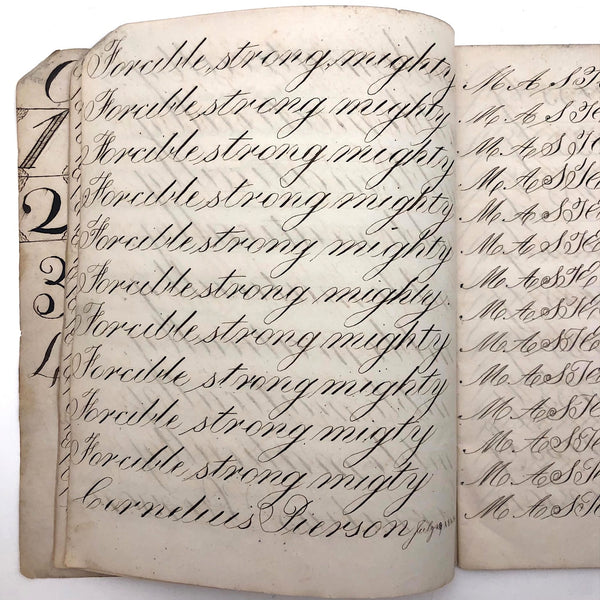 1
2
3
4
Forcible, strong, mighty
Forcible strong mighty
Forcible strong mighty
Forcible strong mighty
Forcible strong mighty
Forcible strong mighty.
Forcible strong mighty
Forcible strong mighty
Forcible strong migty
Forcible strong migty
Cornelius Pierson July 19
M A S T
M A S T
M A S T
M A S T E
M A S T E
M A S T E
M A S T E
M A S T E
M A S T E
M A S T E
M A S T E
M A S T
M A S T